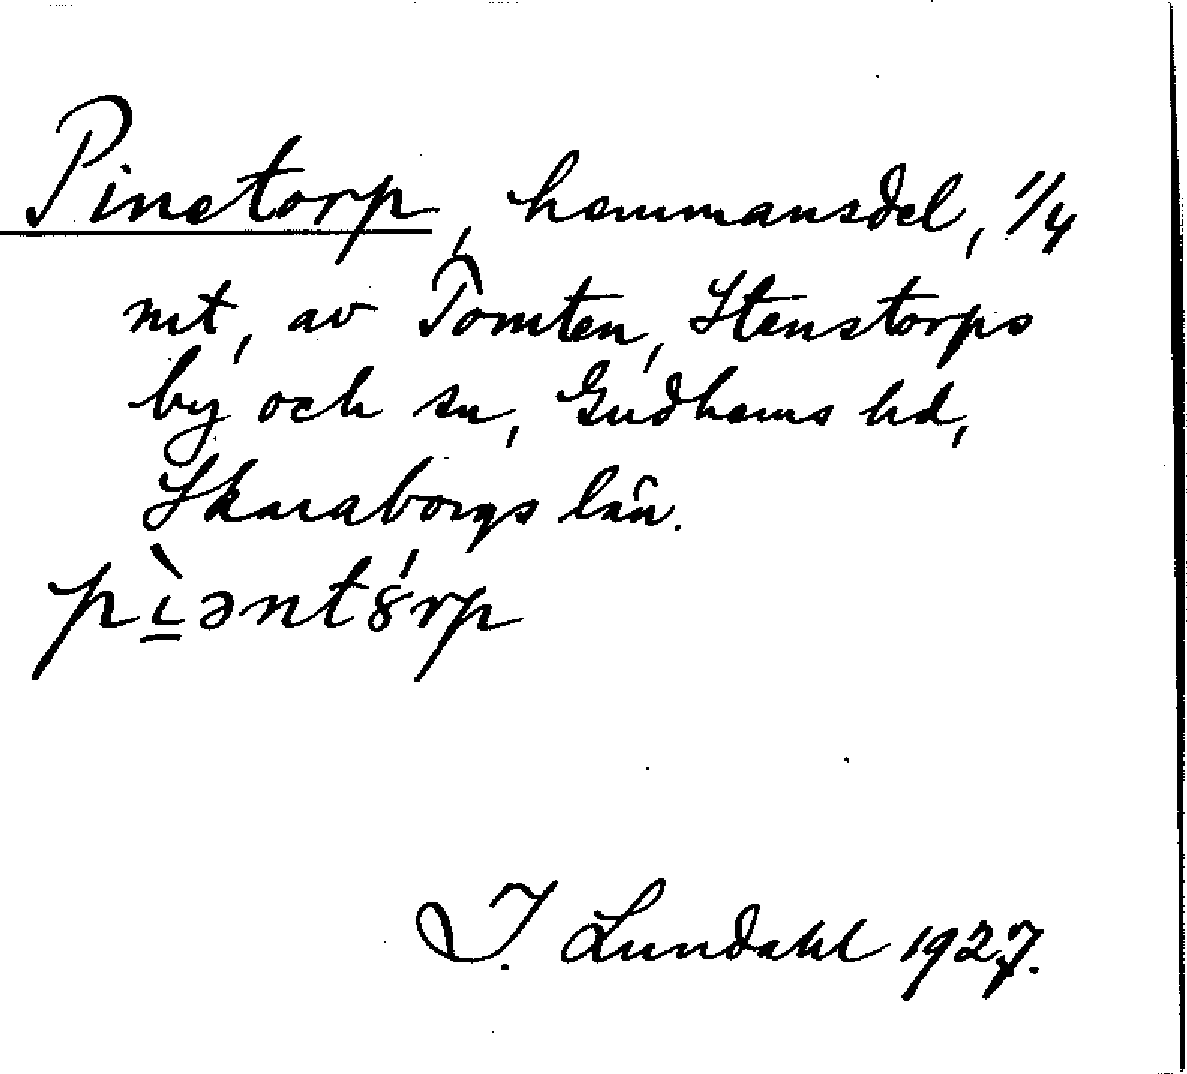 Pinetorp, hemmansdel, 1/4
mt, av Tomten, Stenstorps
by och sn, Gudhems hd,
Skaraborgs län.
pı̱̀əntȣ́rp
I. Lundahl 1927.